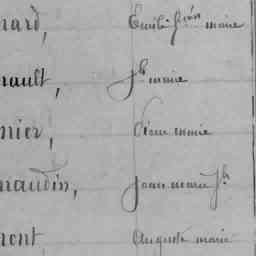 nard, Emile fçois marie
nault, Jh marie
nier, Pierre marie
naudin, Jean marie Jh
mont, Auguste marie